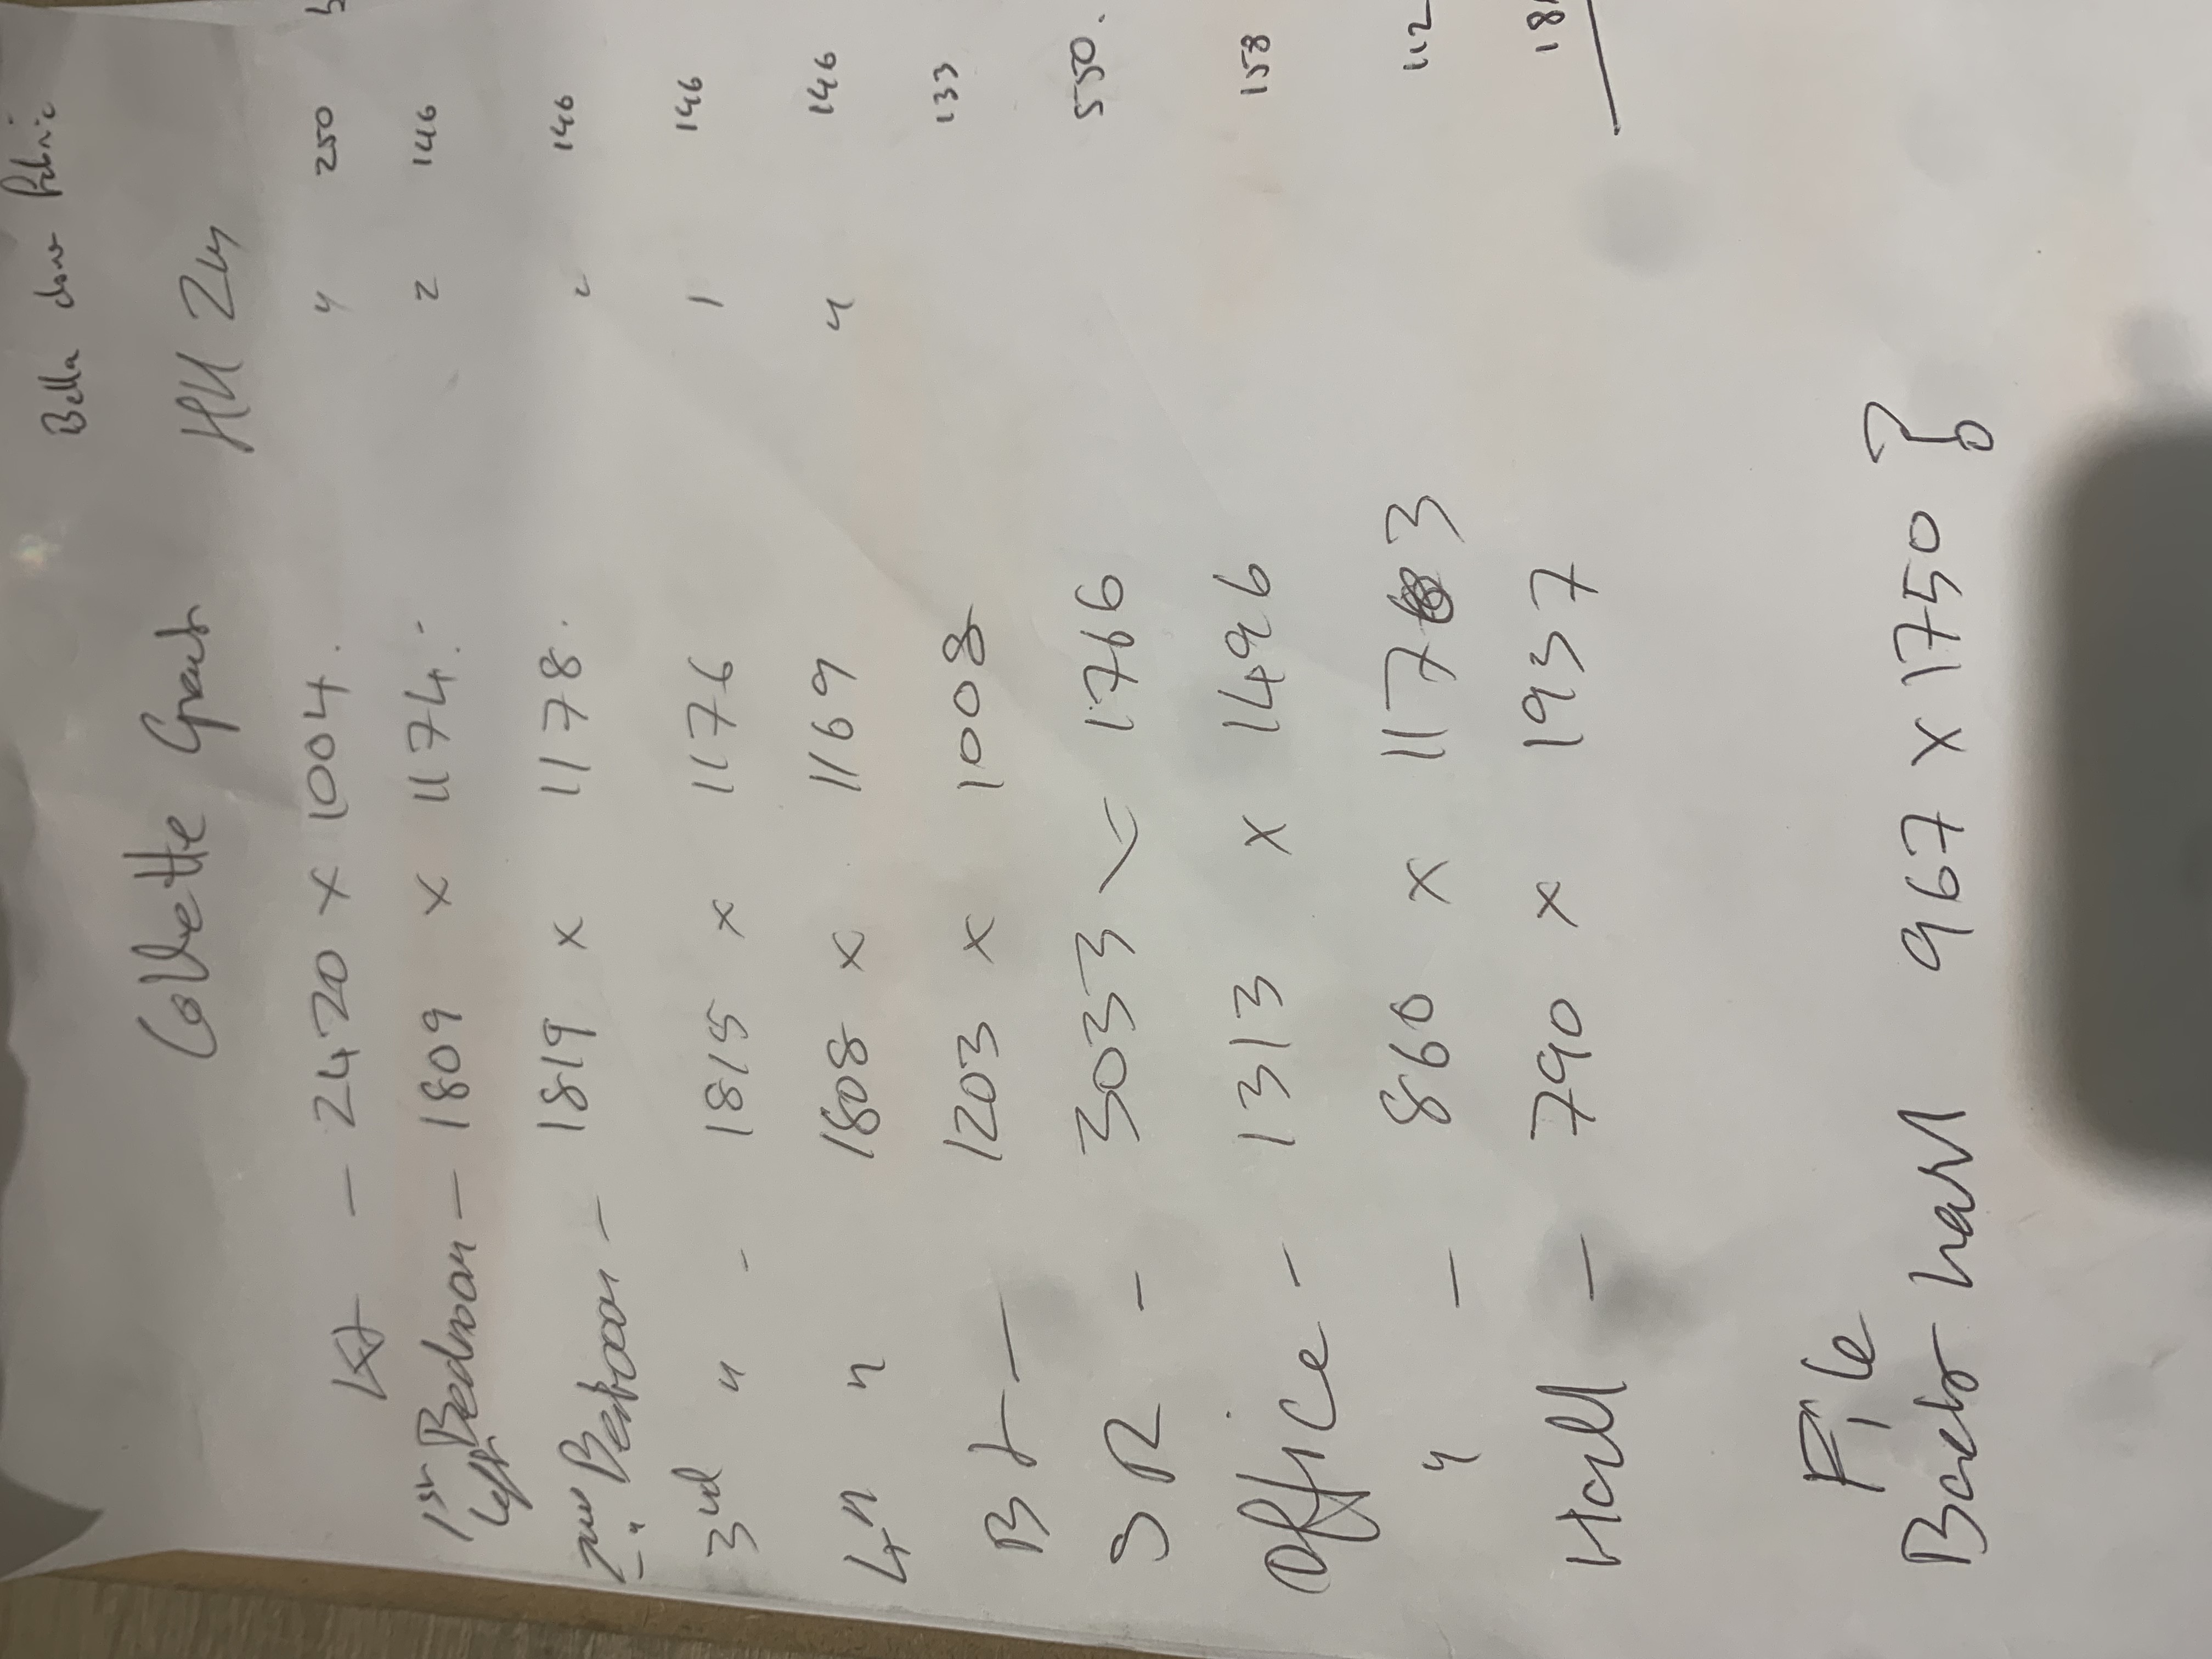 Bella dour Fabric
Collette Grant HU 24
Kit - 2420 x 1004. " 250
1st Bedroom - 1809 x 1174. 2 146
Left
2nd Bedroom - 1819 x 1178. " 146
3rd " - 1815 x 1176 1 146
4th " 1808 x 1169 4 146
B + - 1203 x 1008 133
SR - 3033 x 1766 550.
Office - 1313 x 1496 158
" - 860 x 1173 112
Hall - 790 x 1937 18
File
Back hall 967 x 1750 ?